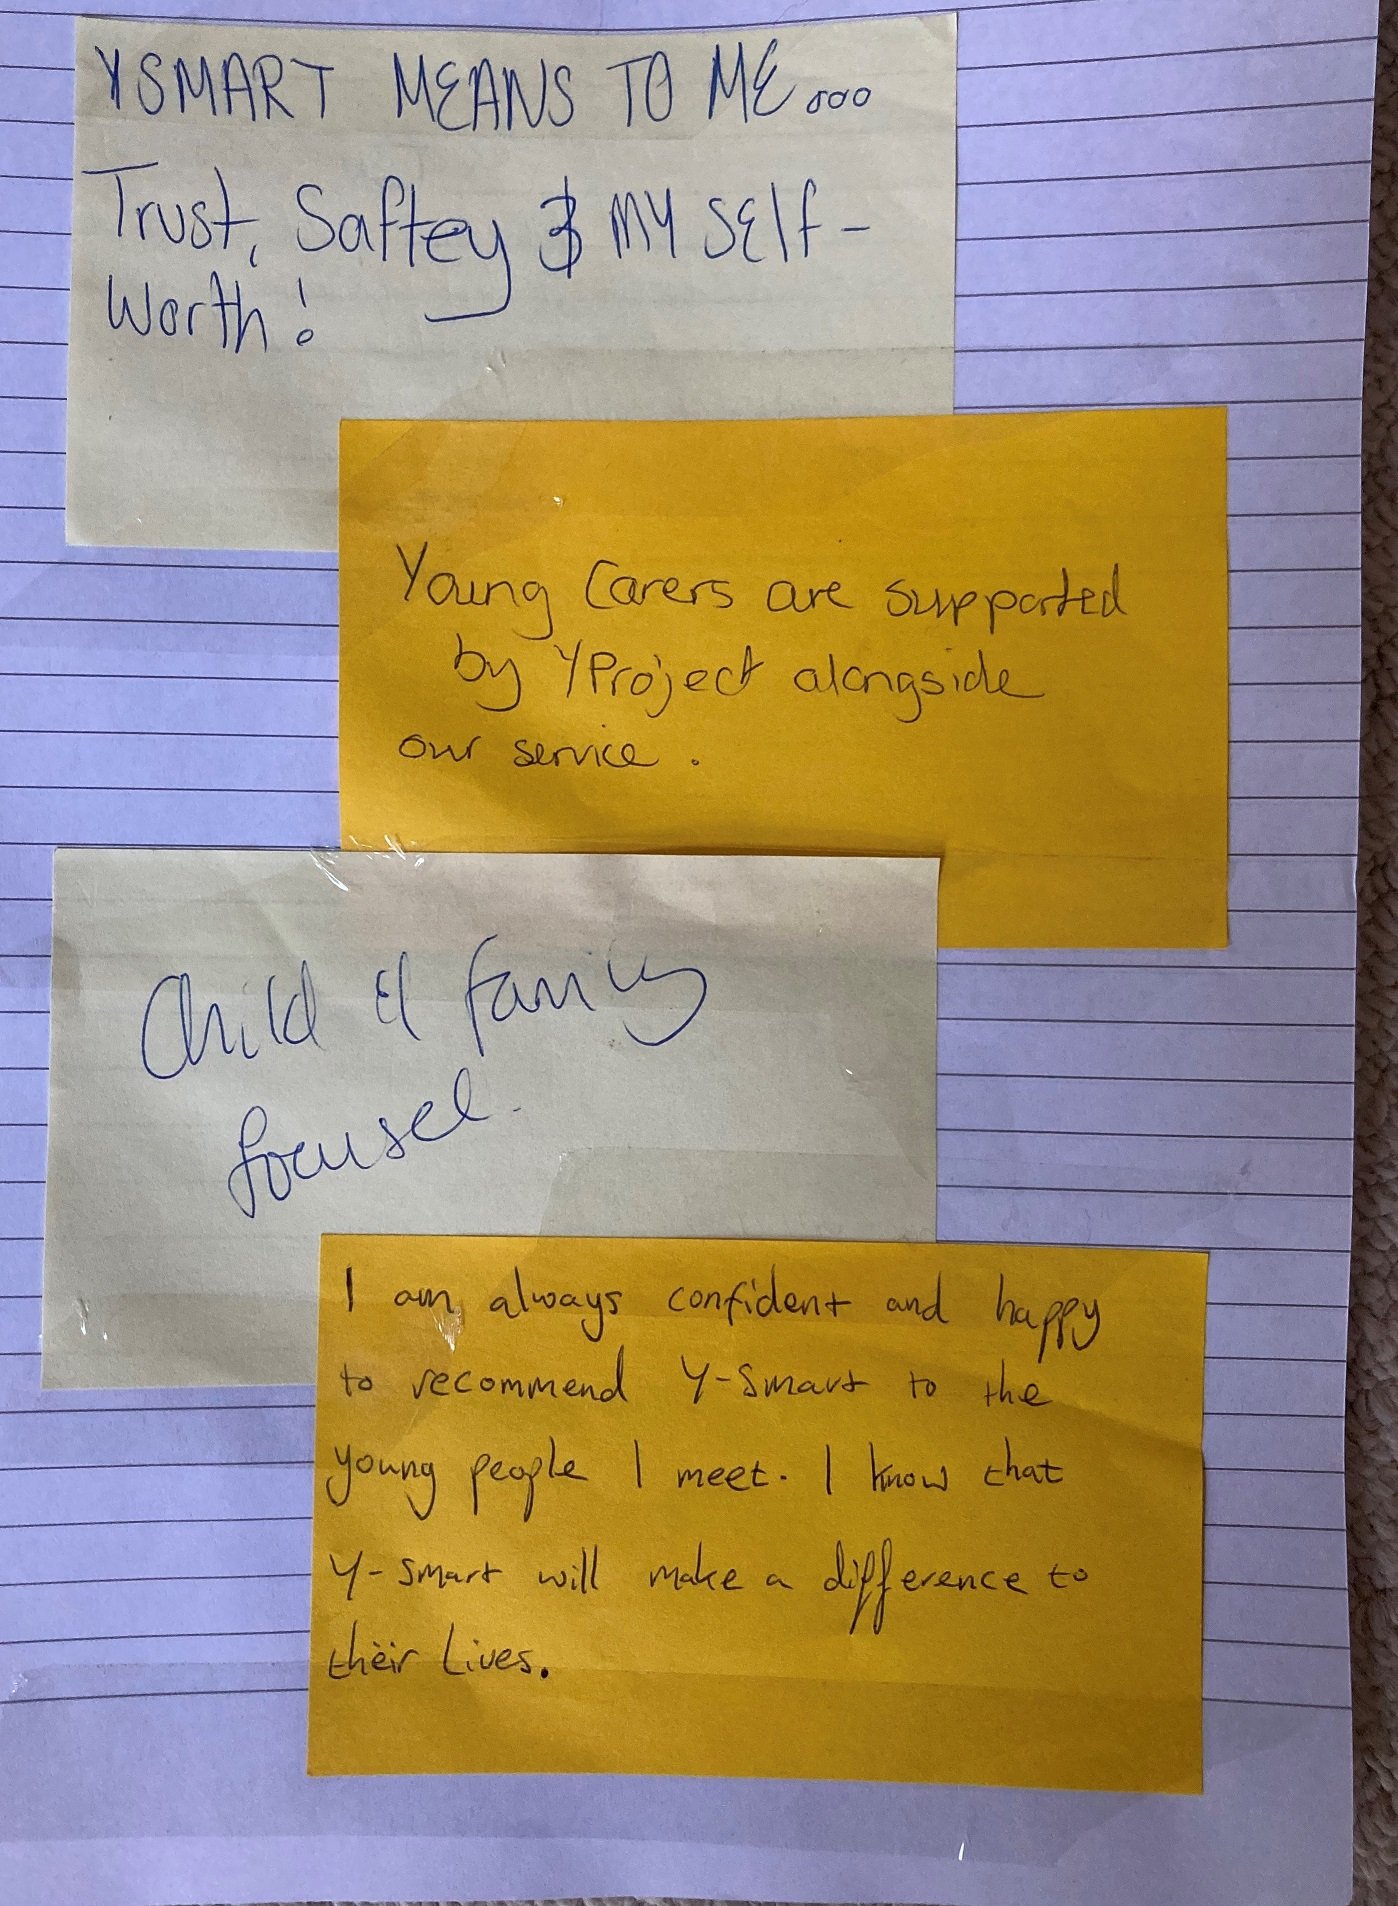 YSMART MEANS TO ME...
Trust, Saftey & MY SElf-
Worth!
Young Carers are supported
by YProject alongside
our service.
Child & family
focused.
I am always confident and happy
to recommend Y-Smart to the
young people I meet. I know that
Y-Smart will make a difference to
their lives.